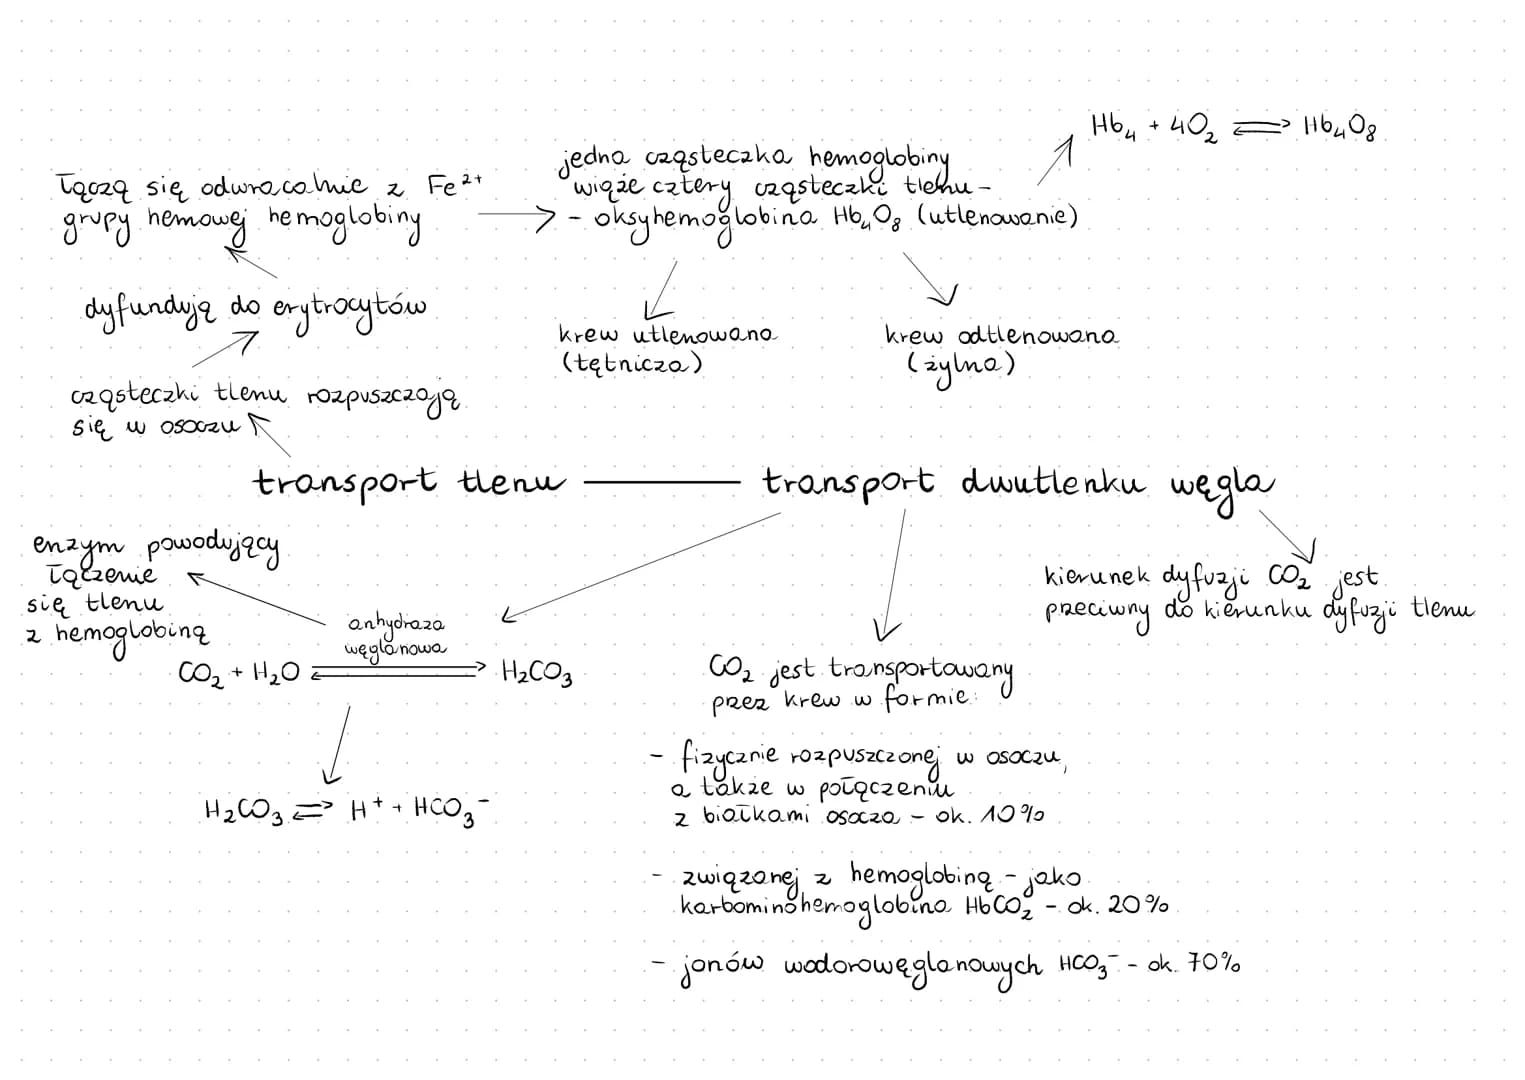 Hb₄ + 4O₂ ⇌ Hb₄O₈
łączą się odwracalnie z Fe²⁺
grupy hemowej hemoglobiny
jedna cząsteczka hemoglobiny
wiąże cztery cząsteczki tlenu -
- oksyhemoglobina Hb₄O₈ (utlenowanie)
dyfundują do erytrocytów
krew utlenowana
(tętnicza)
krew odtlenowana
(żylna)
cząsteczki tlenu rozpuszczają
się w osoczu
transport tlenu
transport dwutlenku węgla
enzym powodujący
łączenie
się tlenu
z hemoglobiną
kierunek dyfuzji CO₂ jest
przeciwny do kierunku dyfuzji tlenu
anhydraza
węglanowa
CO₂ + H₂O ⇌ H₂CO₃
H₂CO₃ ⇌ H⁺ + HCO₃⁻
CO₂ jest transportowany
przez krew w formie:
- fizycznie rozpuszczonej w osoczu,
a także w połączeniu
z białkami osocza - ok. 10%
- związanej z hemoglobiną - jako
karbominohemoglobina HbCO₂ - ok. 20%
- jonów wodorowęglanowych HCO₃⁻ - ok. 70%